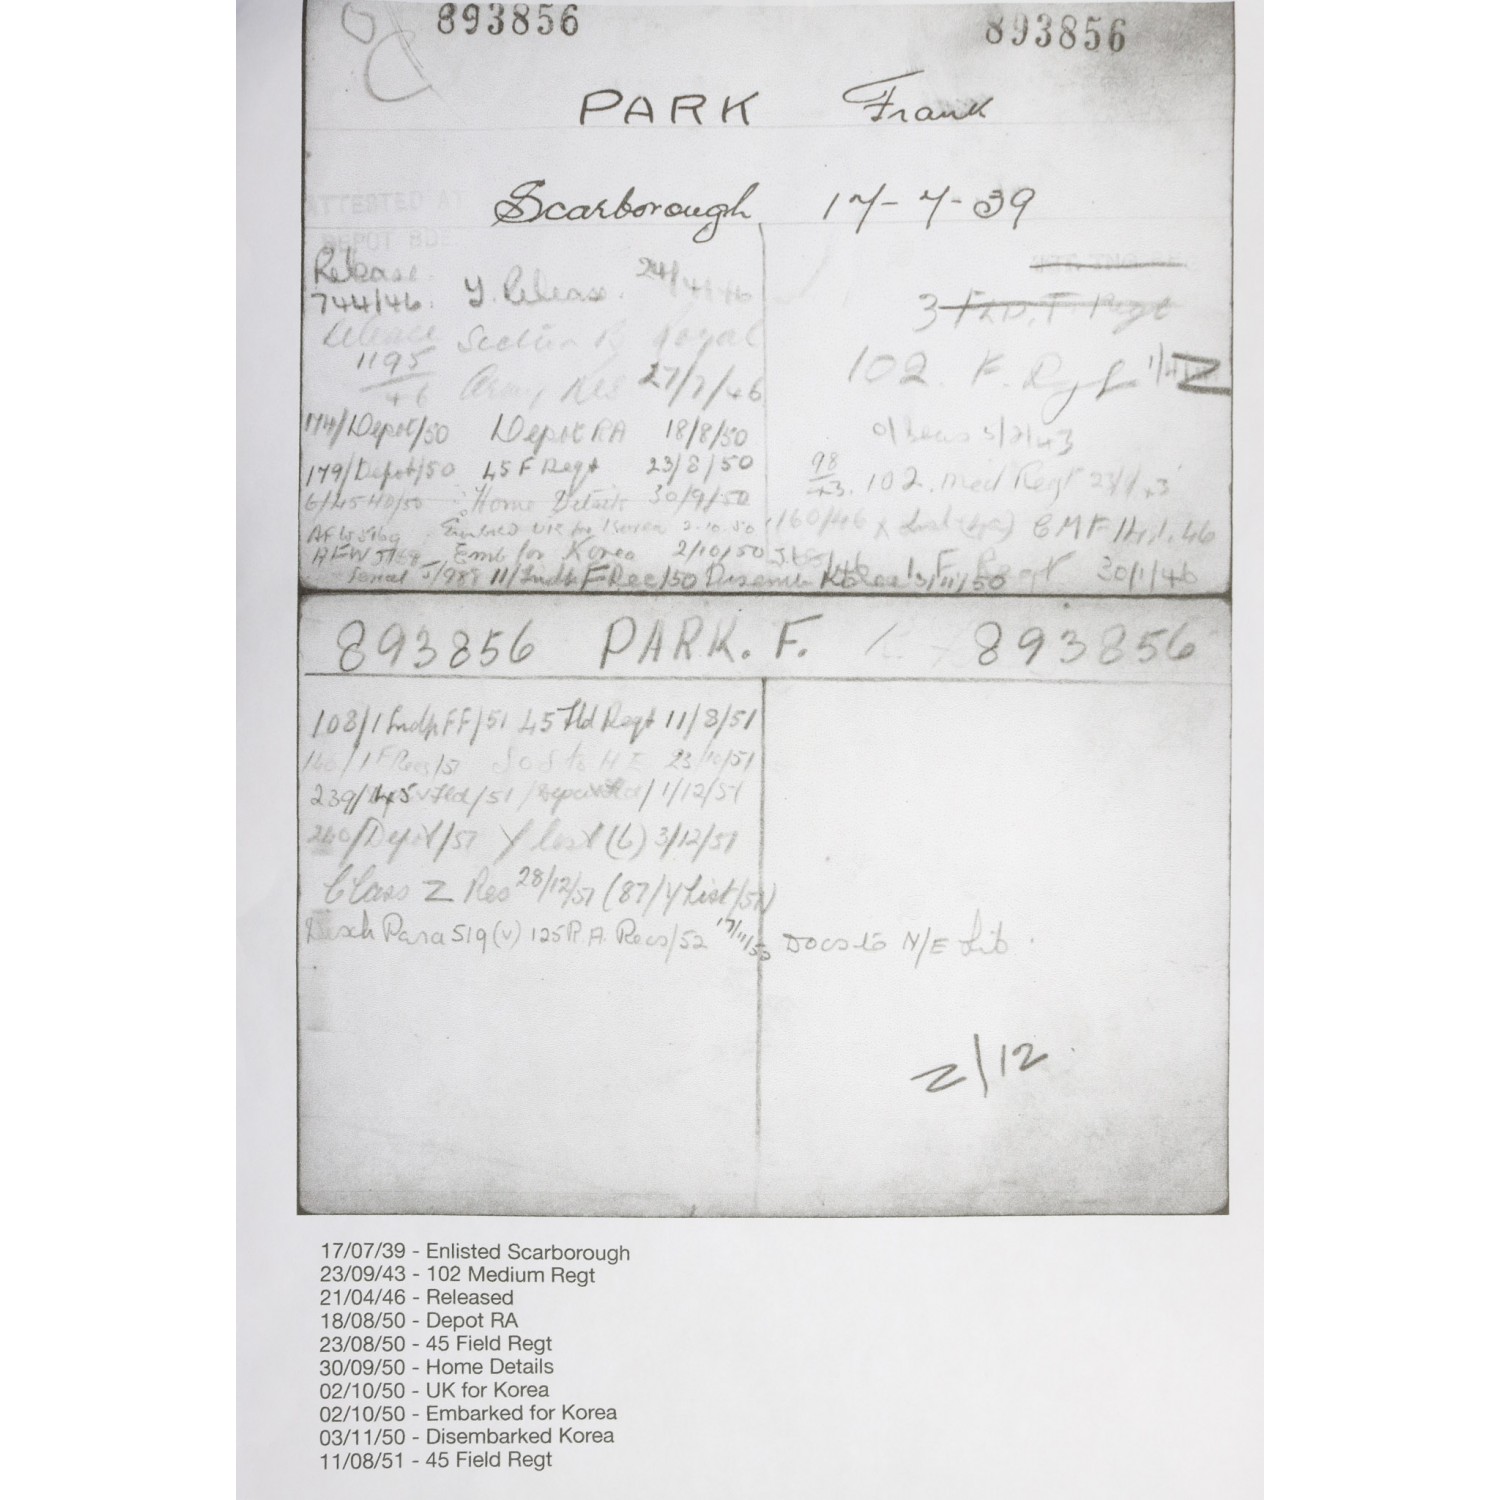 893856 893856
PARK Frank
Scarborough 17-7-39
ATTESTED AT
DEPOT BDE
Release
744/46. Y. Release. 24/4/46
3 FLD. T. Regt
Release Section B Royal
1195
46 Army Res 27/7/46
102. F. Regt Z
174/Depot/50 Depot RA 18/8/50
179/Depot/50 45 F Regt 23/8/50
98
43. 102. Med Regt
Home Details 30/9/50
AFW 5169 Embked UK for Korea 2-10-50
160/46 CMF 46
AFW 5168 Emb for Korea 2/10/50
Regt 30/1/46
Serial 11/Indp F Rec/50 Disemb Korea 3/11/50
893856 PARK. F. 893856
108/1 Indp FF/51 45 Fld Regt 11/8/51
SOS to H E 23/10/51
239/45 Fld/51 1/12/51
240/Depot/51 Y List (6) 3/12/51
Class Z Res 28/12/51 (87/Y List/51)
Disch Para 519(v) 125 R.A. Recs/52 Docs to N/E Lib.
Z/12
17/07/39 - Enlisted Scarborough
23/09/43 - 102 Medium Regt
21/04/46 - Released
18/08/50 - Depot RA
23/08/50 - 45 Field Regt
30/09/50 - Home Details
02/10/50 - UK for Korea
02/10/50 - Embarked for Korea
03/11/50 - Disembarked Korea
11/08/51 - 45 Field Regt